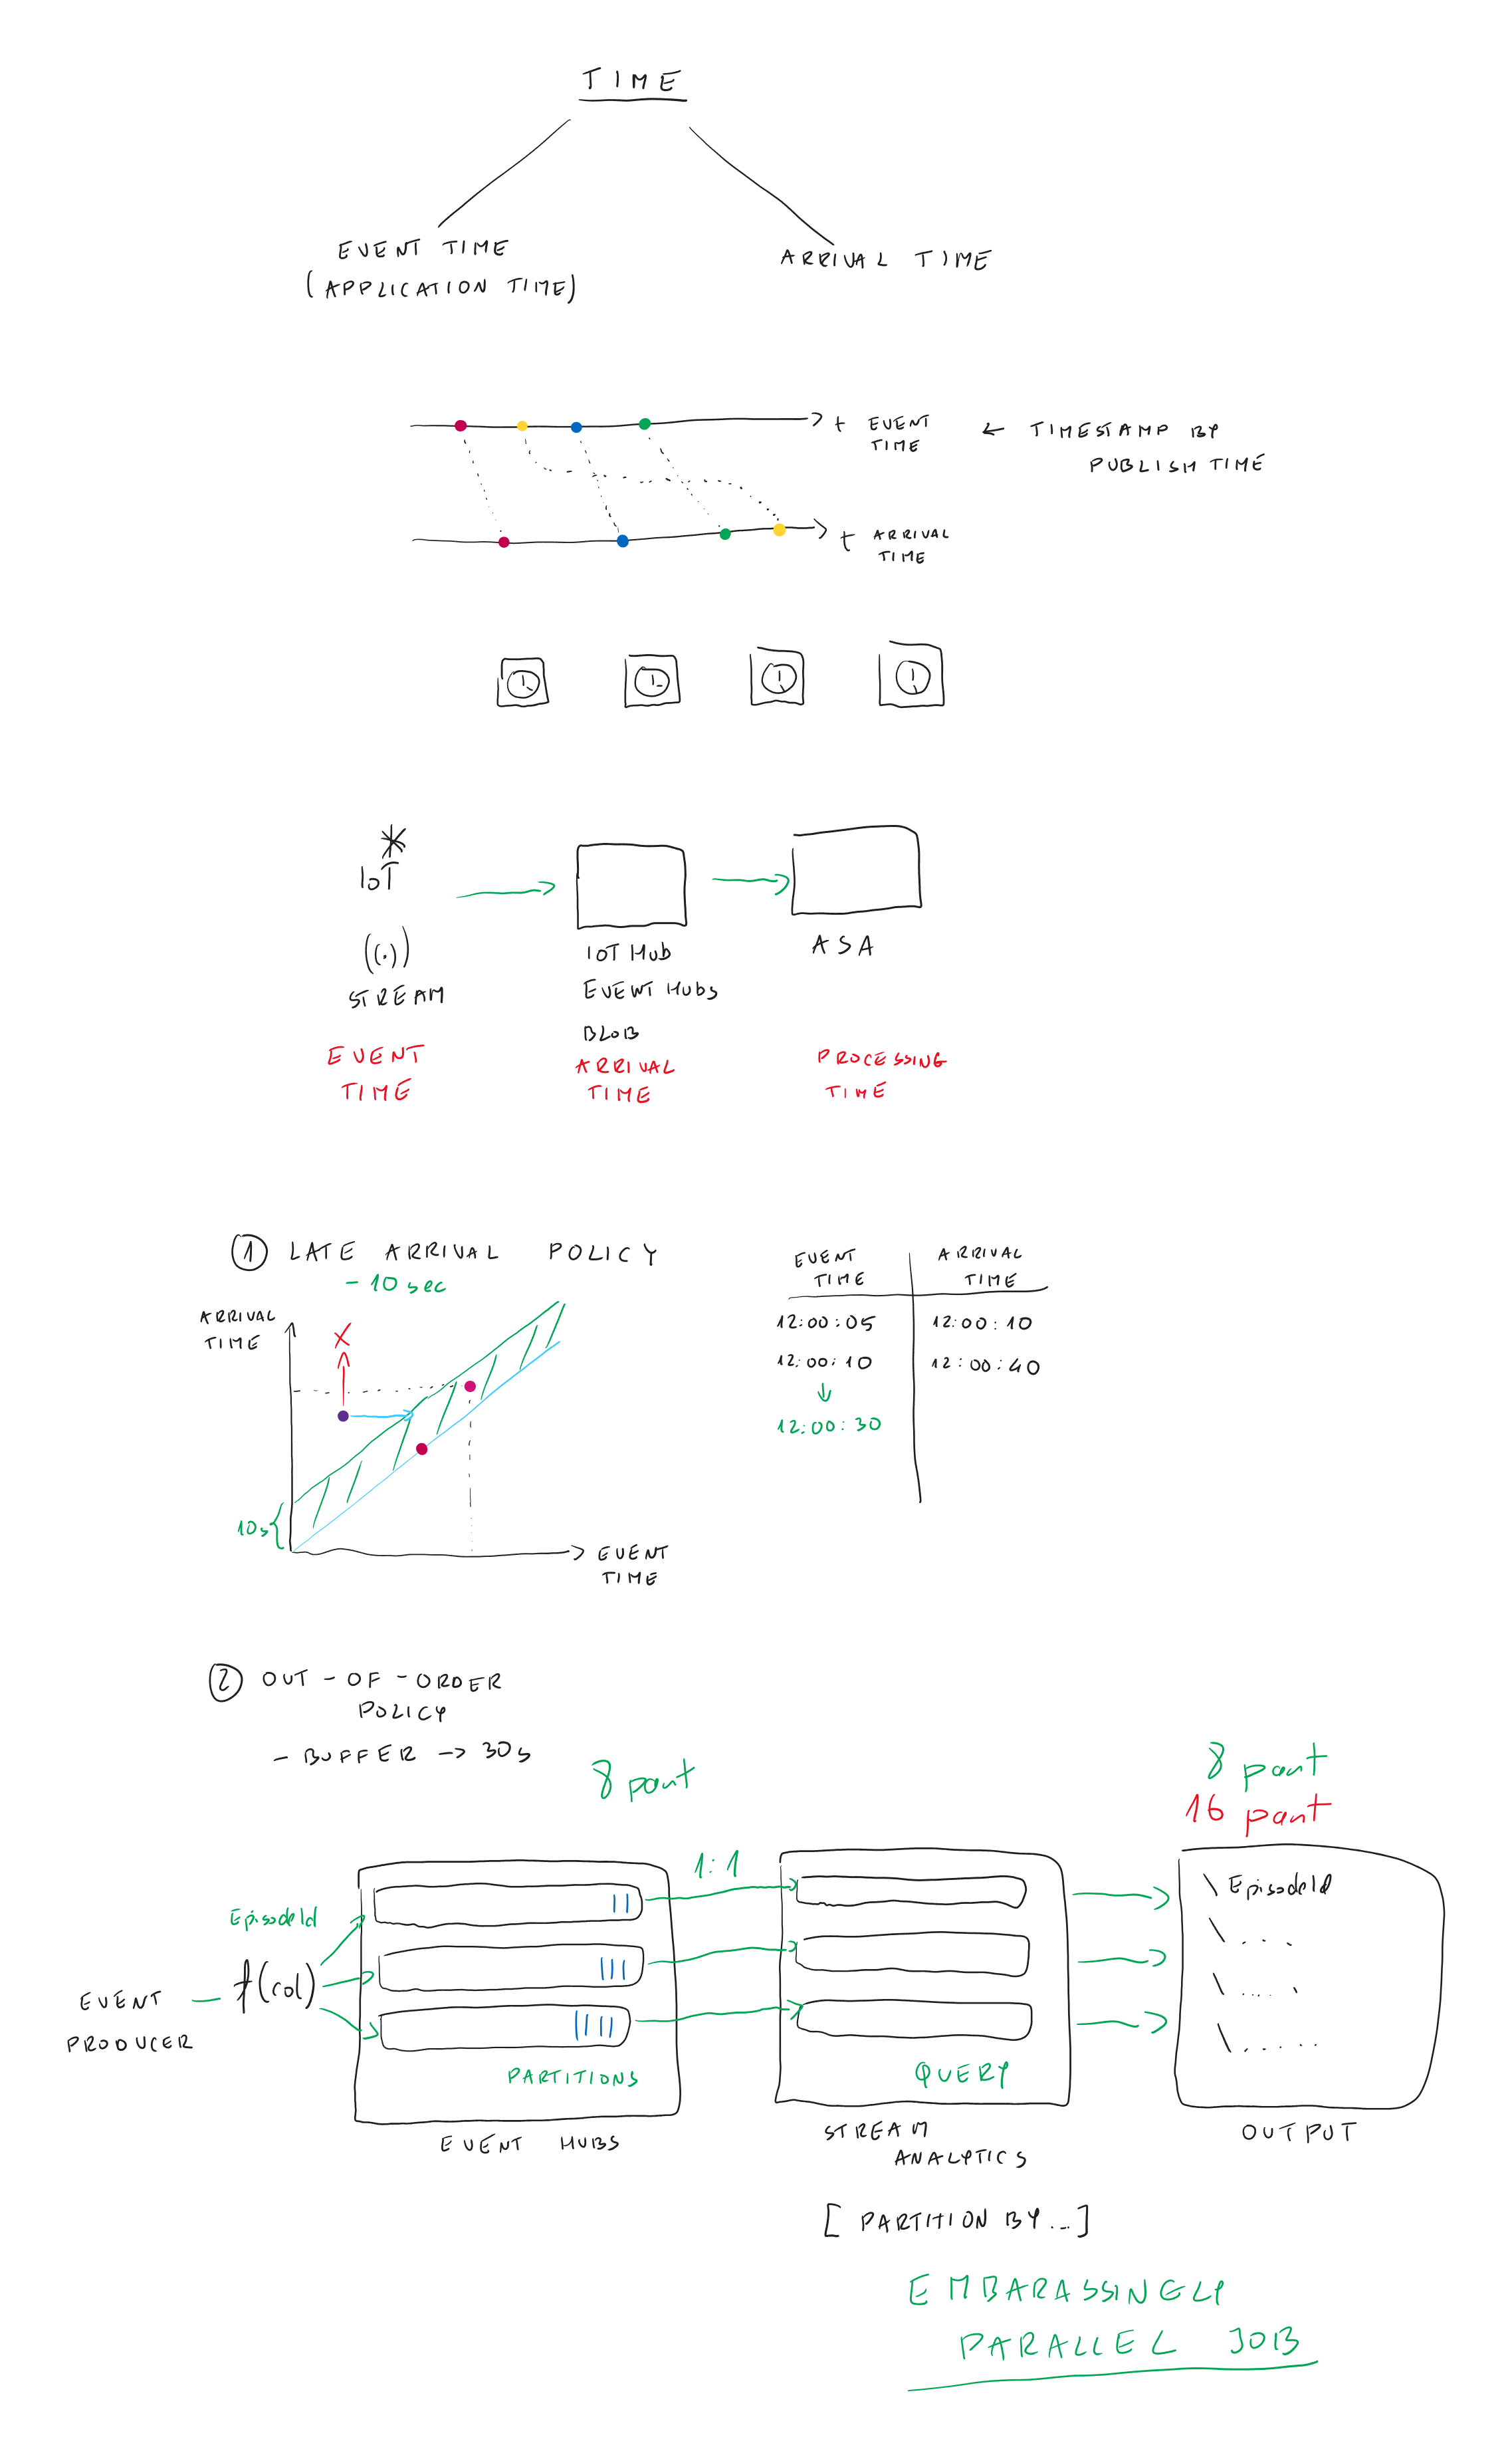 TIME
EVENT TIME
(APPLICATION TIME)
ARRIVAL TIME
t EVENT
TIME
← TIMESTAMP BY
PUBLISHTIME
t ARRIVAL
TIME
IoT
((.))
STREAM
EVENT
TIME
IOT Hub
EVENT Hubs
BLOB
ARRIVAL
TIME
ASA
PROCESSING
TIME
① LATE ARRIVAL POLICY
- 10 sec
ARRIVAL
TIME
X
10s
EVENT
TIME
EVENT
TIME
ARRIVAL
TIME
12:00:05
12:00:10
12:00:10
12:00:40
↓
12:00:30
② OUT-OF-ORDER
POLICY
- BUFFER -> 30s
8 part
8 part
16 part
1:1
EpisodeId
EVENT
PRODUCER
f(col)
PARTITIONS
EVENT HUBS
QUERY
STREAM
ANALYTICS
\ EpisodeId
\ . . .
\ .... \
\ . . . . .
OUTPUT
[ PARTITION BY ... ]
EMBARASSINGLY
PARALLEL JOB